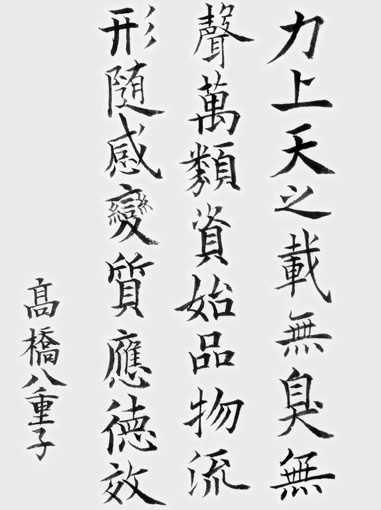 力上天之載無臭無
聲萬類資始品物流
形隨感變質應德效
髙橋八重子